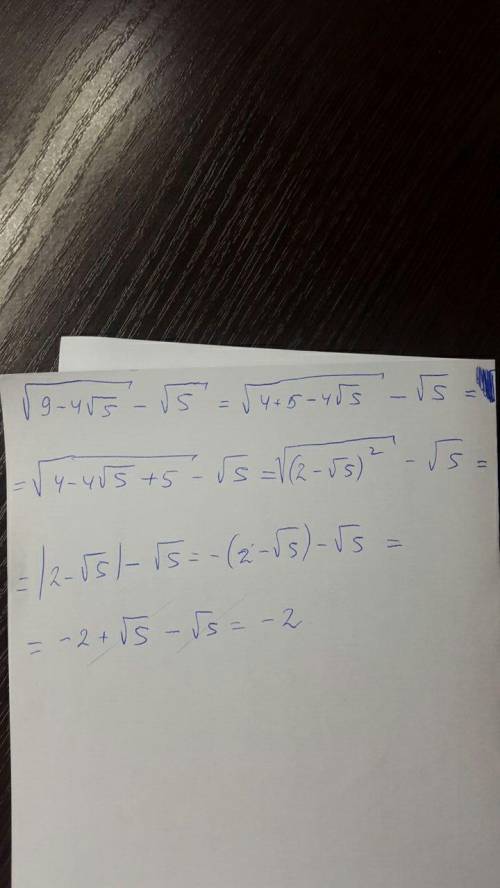 √(9-4√5) - √5 = √(4+5-4√5) - √5 =
= √(4-4√5+5) - √5 = √((2-√5)²) - √5 =
= |2-√5| - √5 = -(2-√5) - √5 =
= -2+√5 - √5 = -2